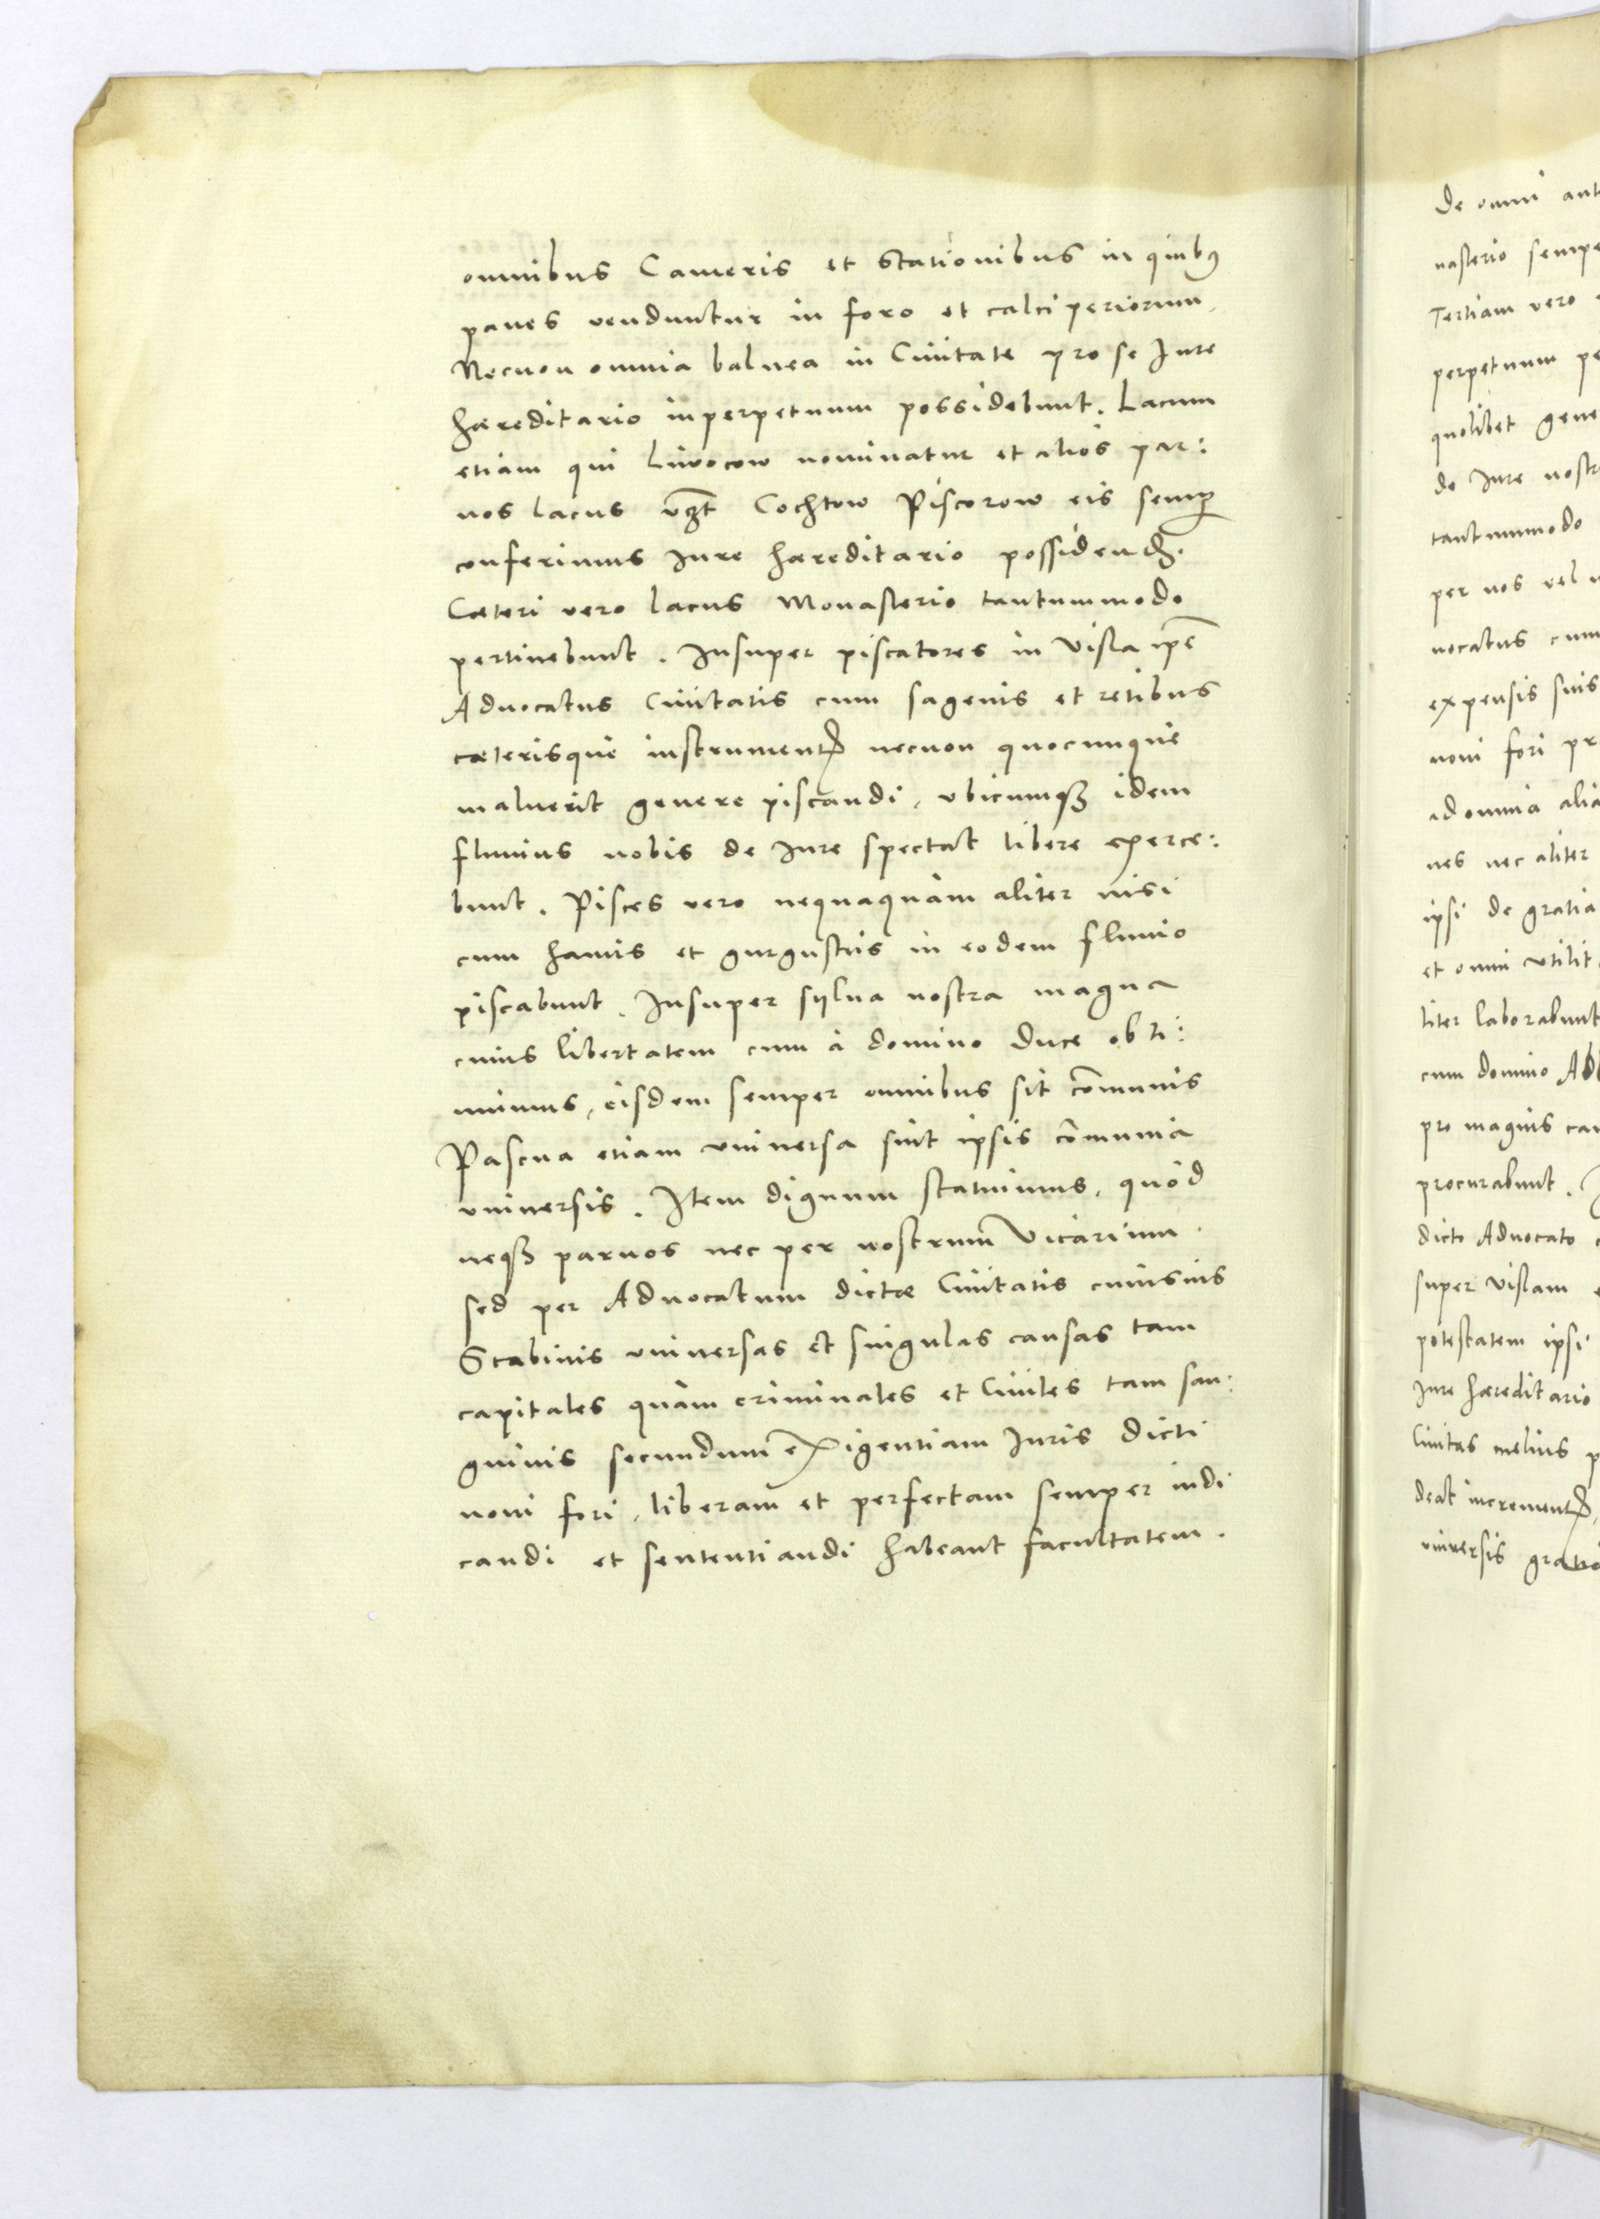 omnibus Cameris et Stationibus in quibꝰ
panes venduntur in foro et calciperiorum.
Necnon omnia balnea in Ciuitate pro se Jure
hæreditario inperpetuum possidebunt. Lacum
etiam qui Liwocow nominatur et alios par:
uos lacus vꝫt Cochtow Piscorow eis semꝑ
conferimus Jure hæreditario possidend.
Cæteri vero lacus Monasterio tantummodo
pertinebunt. Insuper piscatores in Visla ip̄e
Aduocatus Ciuitatis cum sagenis et retibus
cæterisque instrument. necnon quocunque
maluerit genere piscandi, vbicumqꝫ idem
fluuius nobis de Jure spectat libere exerce:
bunt. Pisces vero nequaquàm aliter nisi
cum hamis et gurgustiis in eodem fluuio
piscabunt. Insuper sylua nostra magna
cuius libertatem cum à domino Duce obti:
nuimus, eisdem semper omnibus sit com̄unis
Pascua etiam vniuersa sint ipsis com̄unia
vniuersis. Item dignum statuimus, quòd
neqꝫ paruos nec per nostrum Vicarium.
sed per Aduocatum dictæ Ciuitatis cumsuis
Scabinis vniuersas et singulas causas tam
capitales quàm criminales et Ciuiles tam san:
guinis secundum exigentiam Juris dicti
noui fori, liberam et perfectam semper iudi
candi et sententiandi habeant facultatem.
de omni ant
nasterio sempe
Tertiam vero
perpetuum pe
quolibet gene
de Jure nostr
tantummodo
per nos vel
uocatus cum
expensis suis
noui fori pr
ad omnia alia
nes nec aliter
ipsi de gratia
et omni vtilit
liter laborabunt
cum domino Abb
pro magnis cau
procurabunt.
dicto Aduocato
super Vislam
potestatem ipsi
Jure hæreditario
Ciuitas melius p
deat increment.
vniuersis gratio